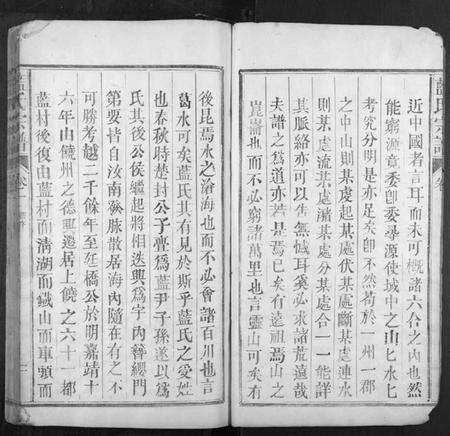 藍氏宗譜
卷
近中國者言耳而未可概諸六合之內也然
能窮源竟委卽委尋源使域中之山匕水匕
考究分明是亦足矣卽不然苟於一州一郡
之中山則某處起某處伏某處斷某處連水
則某處流某處瀦某處分某處合一一能詳
其脈絡亦可以告無憾耳奚必求諸荒遠哉
夫譜之爲道亦若是焉已矣有遠祖焉山之
崑崙也而不必窮諸萬里也言靈山可矣有
後昆焉水之滄海也而不必會諸百川也言
葛水可矣藍氏其有見於斯乎藍氏之受姓
也春秋時楚封公子亹爲藍尹子孫遂以爲
氏其後公侯繼起將相迭興爲宇內簪纓門
第要皆自汝南發脉散居海內隨在有之不
可勝考越二千餘年至虹橋公於明嘉靖十
六年由饒州之德興遷居上饒之六十一都
藍村後復由藍村而清湖而鐵山而車頭而
藍氏宗譜
卷一